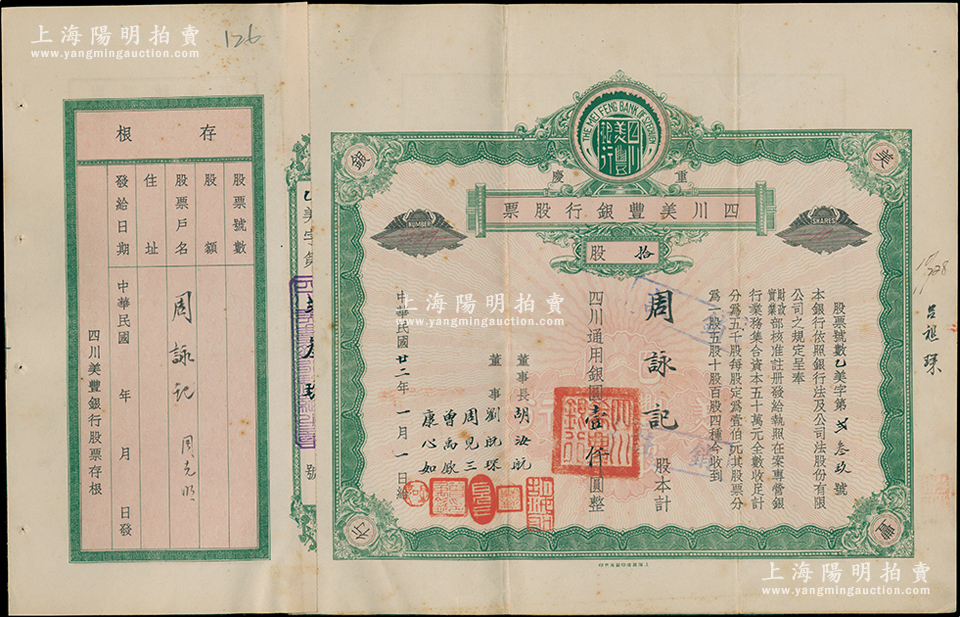 上海陽明拍賣
www.yangmingauction.com
126
THE MEI FENG BANK OF SZCHUAN
四川美豐銀行
重慶
美豐銀行
四川美豐銀行股票
NUMBER
SHARES
拾股
股票號數乙美字第 弍叁玖號
本銀行依照銀行法及公司法股份有限
公司之規定呈奉
財政部實業部核准註册發給執照在案專營銀
行業務集合資本五十萬元全數收足計
分為五千股每股定為壹佰元其股票分
為一股五股十股百股四種今收到
周詠記 股本計
四川通用銀圓壹仟圓整
董事長 胡汝航
董事 劉航琛
周見三
曾禹欽
康心如
中華民國廿二年一月一日給
乙美字第
號
存根
股票號數
股額
股票戶名 周詠記
住址
發給日期 中華民國 年 月 日發
四川美豐銀行股票存根
呂祖琛
上海陽明拍賣
www.yangmingauction.com
上海陽明拍賣
www.yangmingauction.com